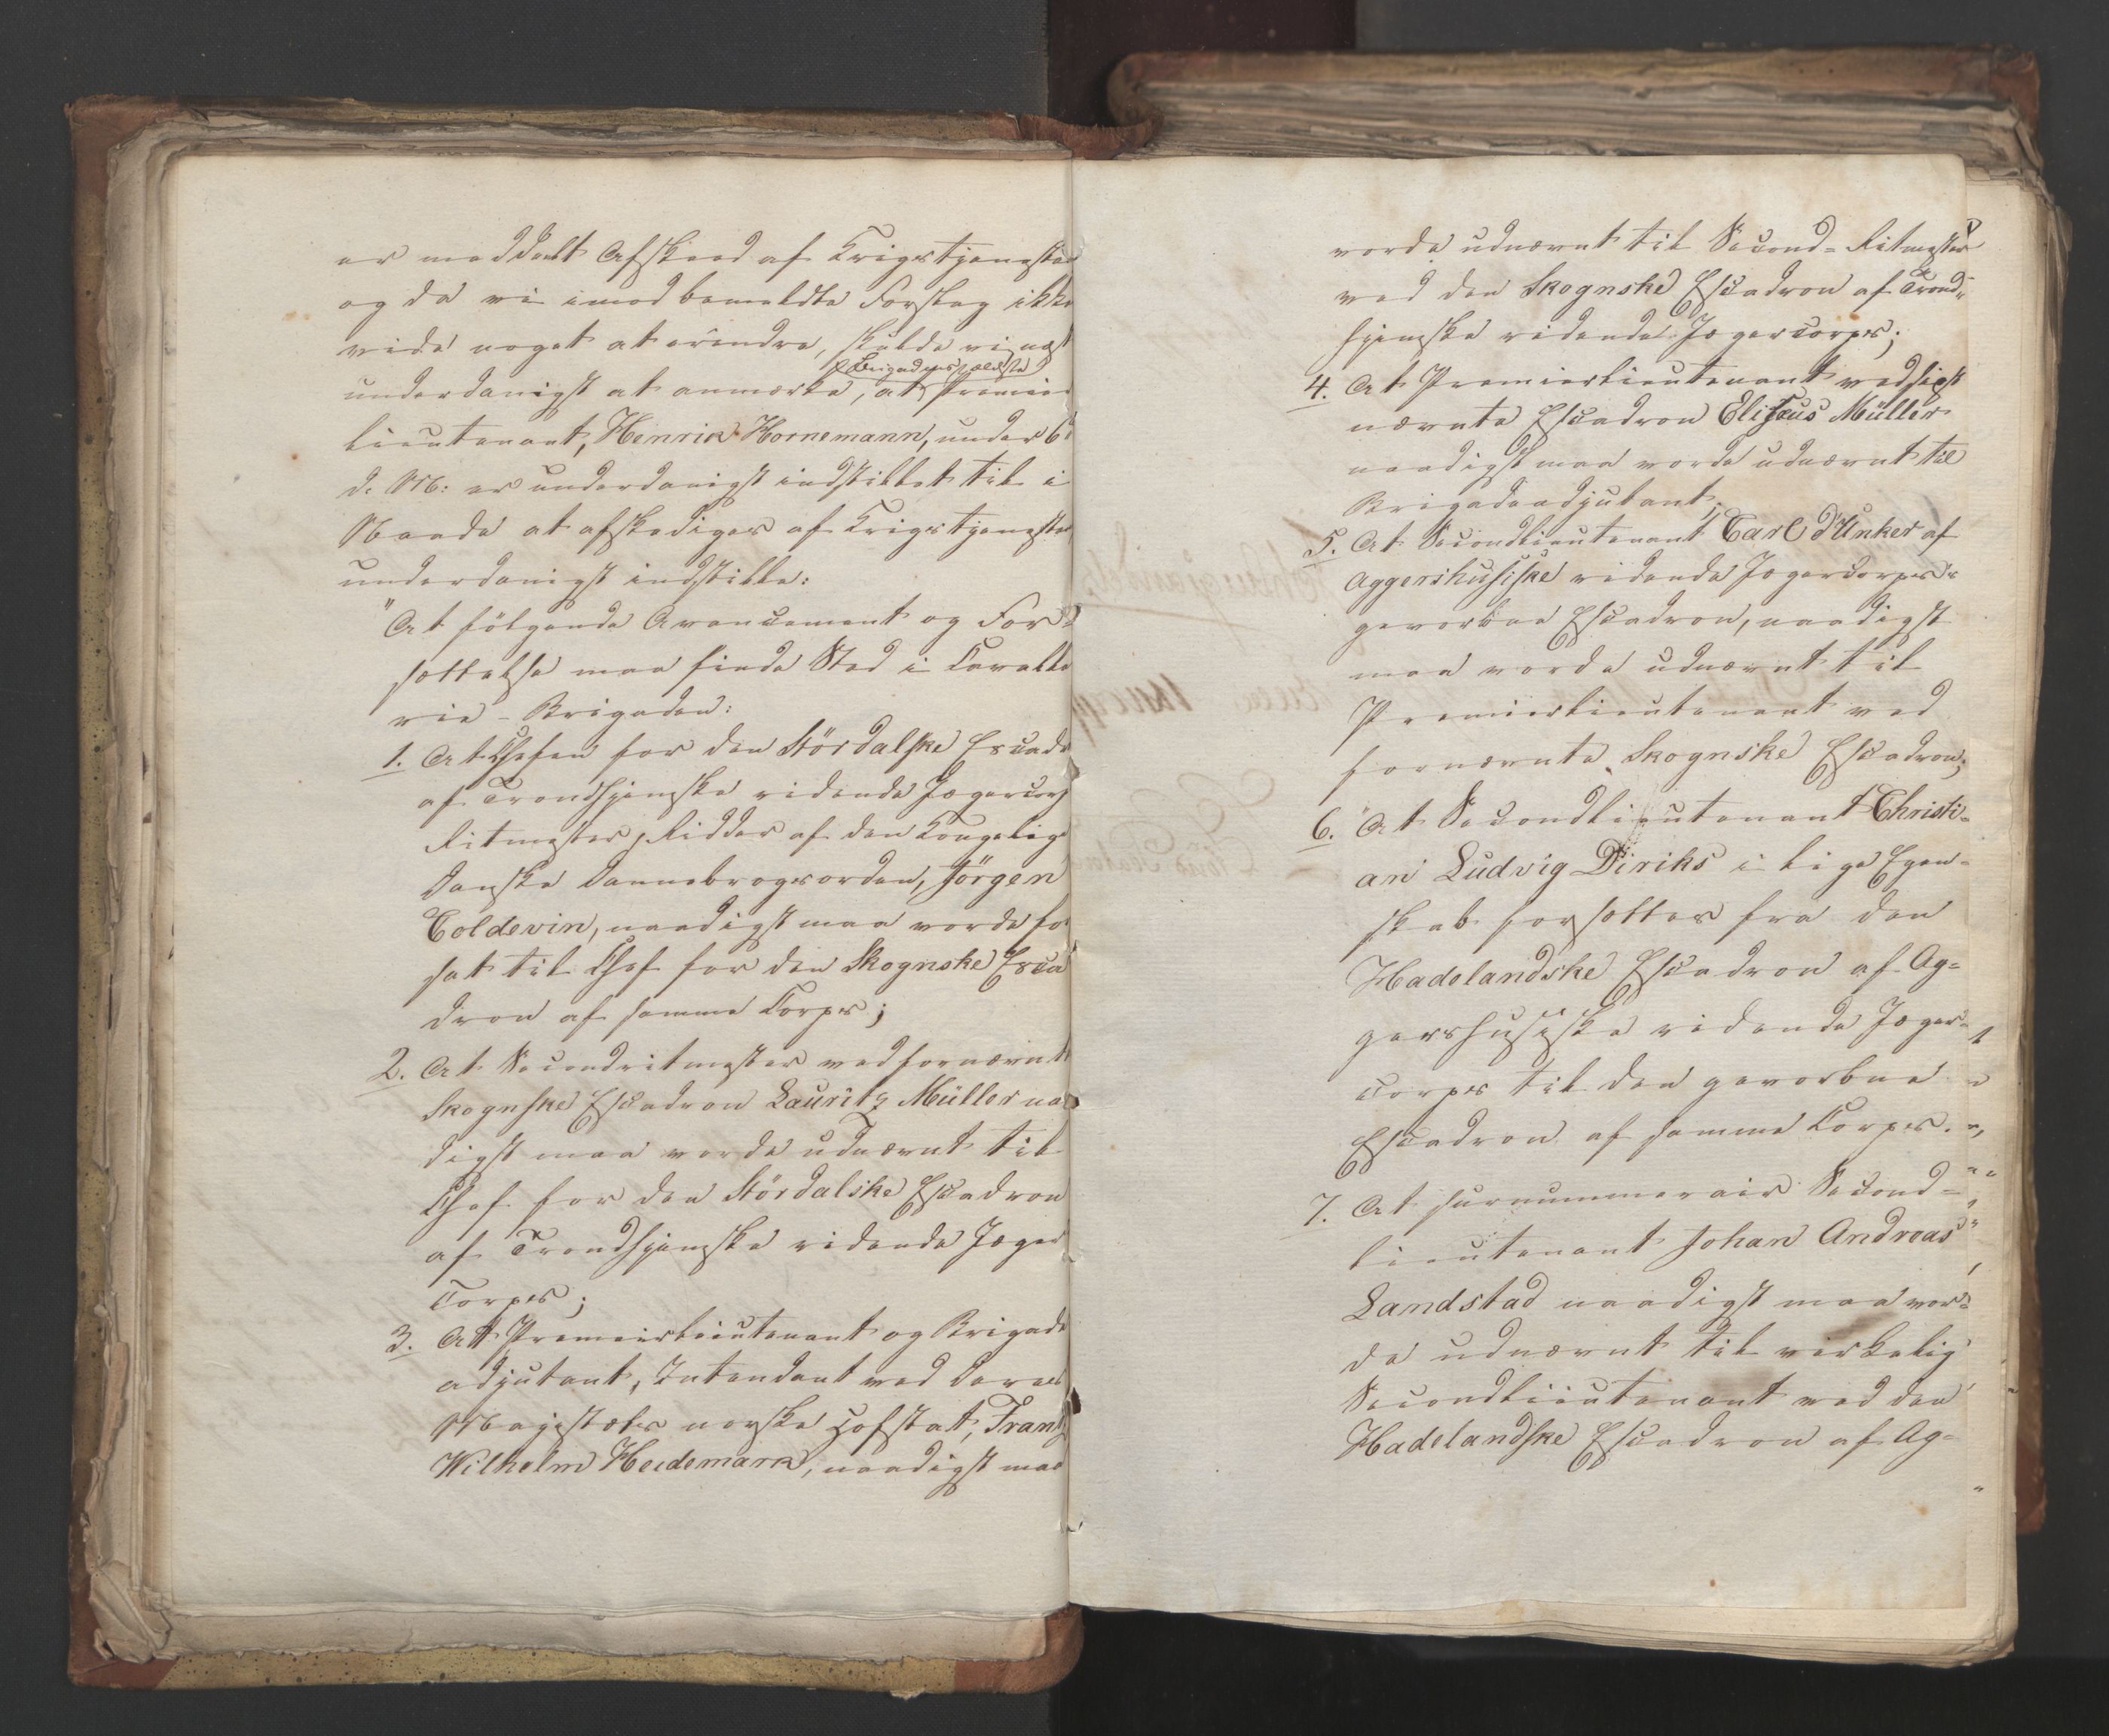 er meddeelt Afskeed af Krigstjenesten
og da vi imod bemeldte Forslag ikke
vide noget at erindre, skulde vi næst
underdanigst at anmærke, at Brigadens ældste Premier
lieutenant, Henrik Hornemann, under 6te
d: M: er underdanigst indstillet til i
Naade at afskediges af Krigstjenesten
underdanigst indstille:
"At fölgende Avancement og For=
sættelse maa finde Sted i Cavalle
rie-Brigaden:
1. At Chefen for den Stördalske Escadr
af Trondhjemske ridende Jægercorps
Ritmester, Ridder af den Kongelige
danske Dannebrogsorden, Jörgen
Coldevin, naadigst maa vorde for
sat til Chef for den Skognske Esca
dron af samme Corps;
2. At Secondritmester ved fornævnte
Skognske Escadron Lauritz Müller naa
digst maa vorde udnævnt til
Chef for den Stördalske Escadron
af Trondhjemske ridende Jæger
Corps;
3. At Premierlieutenant og Brigade
adjutant, Intendant ved Deres
Majestæts norske Hofstat, Frantz
Wilhelm Heidemark, naadigst maa
vorde udnævnt til Second-Ritmester
ved den Skognske Escadron af Trond=
hjemske ridende Jægercorps;
4. At Premierlieutenant ved sidst
nævnte Escadron Elisæus Müller
naadigst maa vorde udnævnt til
Brigadeadjutant;
5. At Secondlieutenant Carl d'Unker af
Aggershusiske ridende Jægercorps's
gevorbne Escadron, naadigst
maa vorde udnævnt til
Premierlieutenant ved
fornævnte Skognske Escadron;
6. At Secondlieutenant Christi=
an Ludvig Diriks i lige Egen=
skab forsættes fra den
Hadelandske Escadron af Ag=
gershusiske ridende Jæger=
corps til den gevorbne
Escadron af samme Corps.
7. At surnummerair Second=
lieutenant Johan Andreas
Landstad naadigst maa vor=
de udnævnt til virkelig
Secondlieutenant ved den
Hadelandske Escadron af Ag=